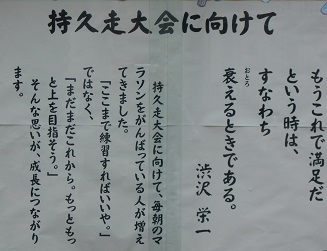 持久走大会に向けて
もうこれで満足だ
という時は、
すなわち
衰えるときである。
おとろ
渋沢 栄一
持久走大会に向けて、毎朝のマ
ラソンをがんばっている人が増え
てきました。
「ここまで練習すればいいや。」
ではなく、
「まだまだこれから。もっともっ
と上を目指そう。」
そんな思いが、成長につながり
ます。